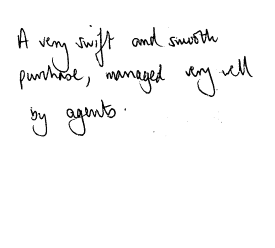 A very swift and smooth
purchase, managed very well
by agents.